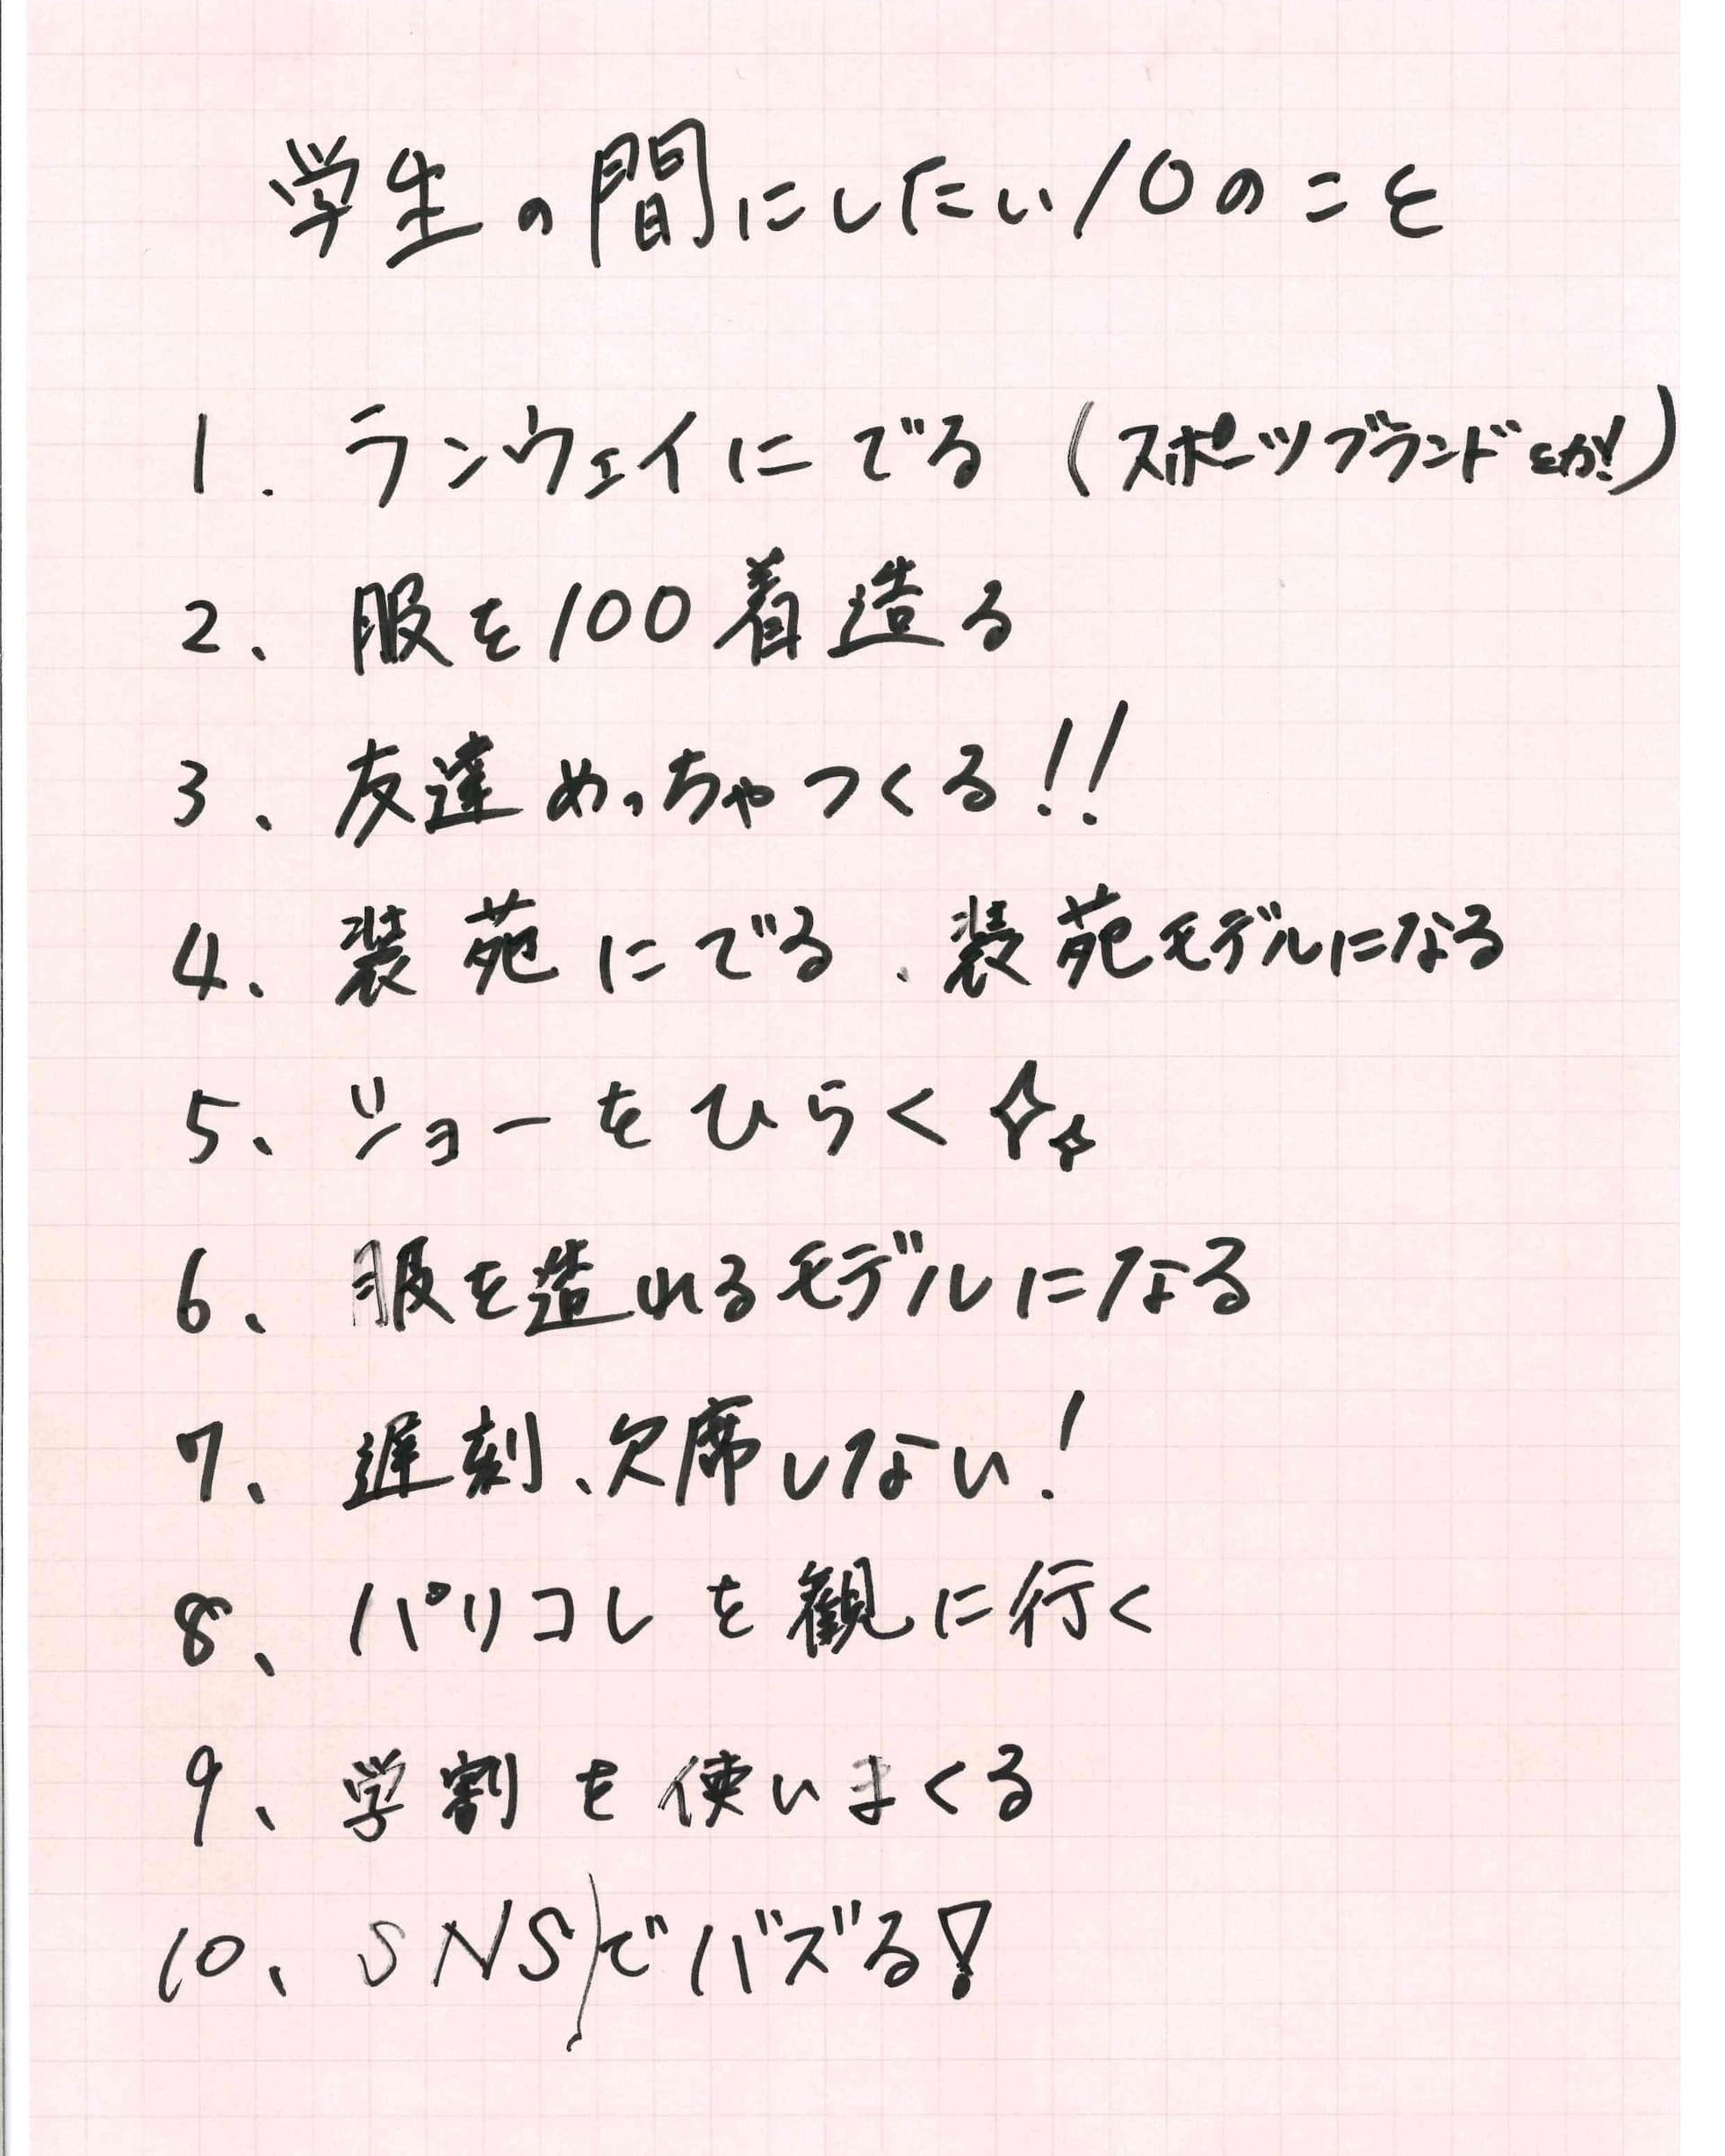 学生の間にしたい10のこと
1. ランウェイにでる (スポーツブランドとか!)
2、服を100着造る
3、友達めっちゃつくる!!
4、装苑にでる、装苑モデルになる
5、ショーをひらく
6、服を造れるモデルになる
7、遅刻、欠席しない!
8、パリコレを観に行く
9、学割を使いまくる
10、SNSでバズる!